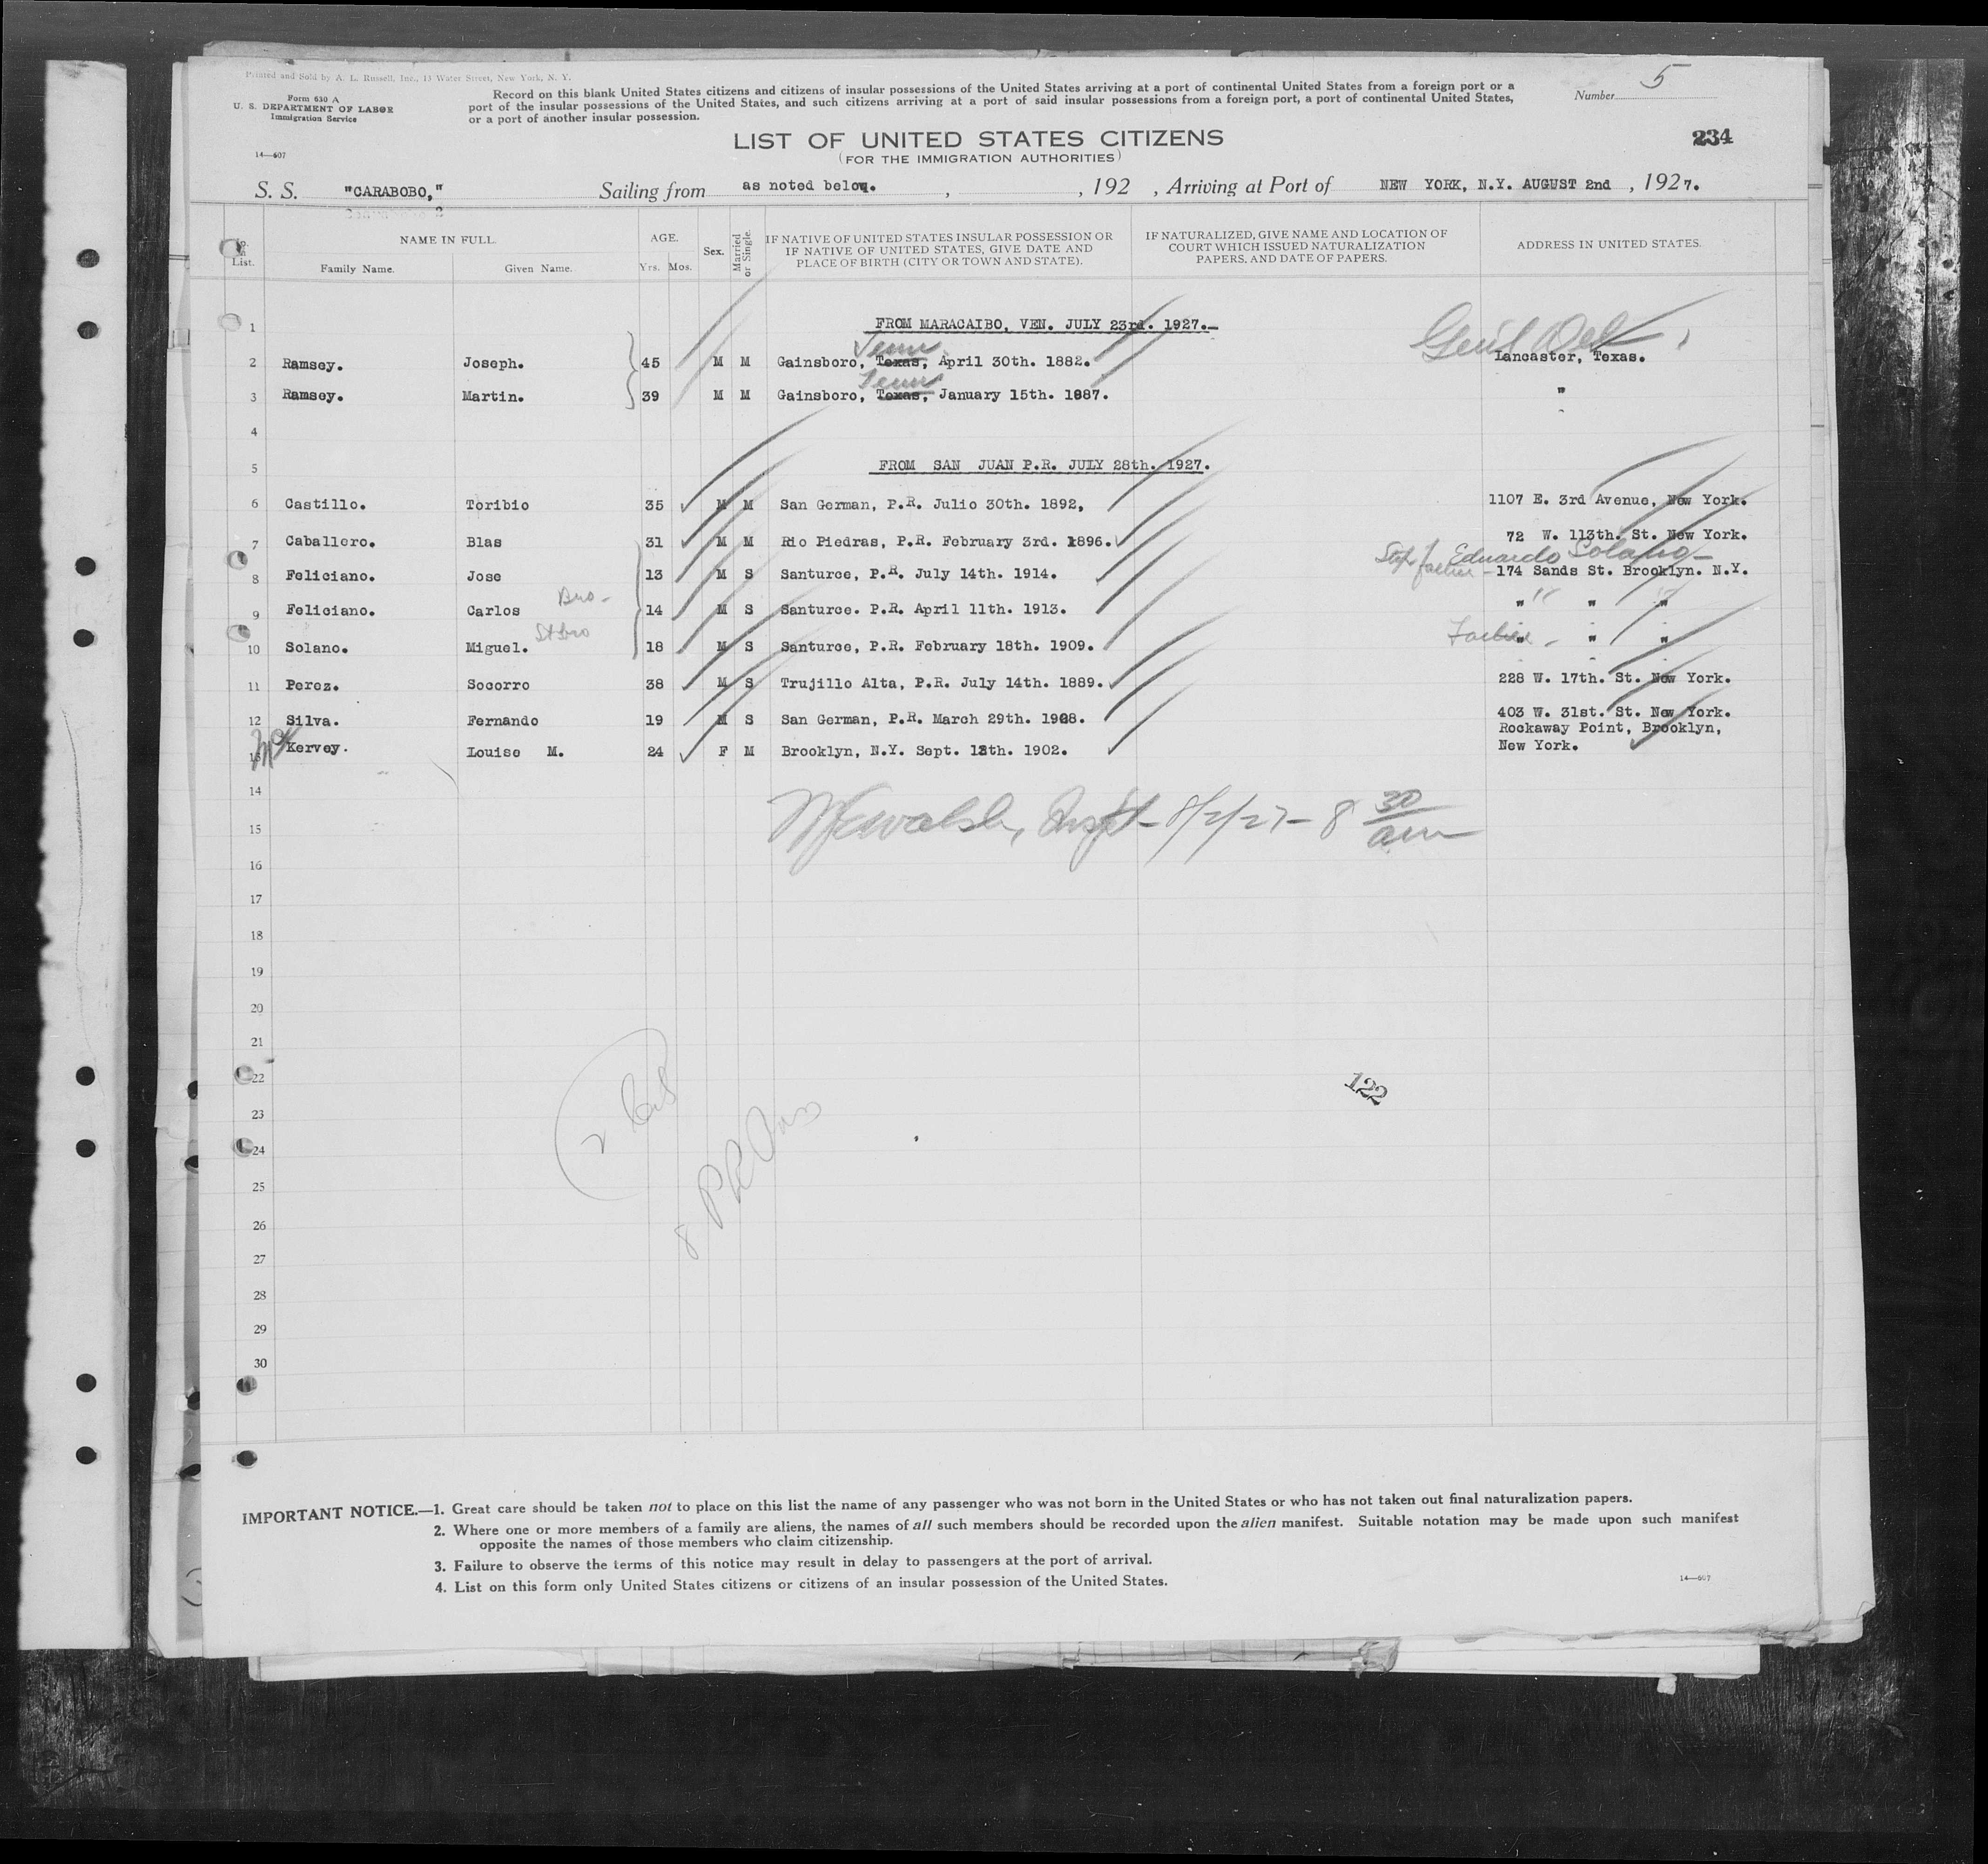 Printed and Sold by A. L. Russell, Inc., 13 Water Street, New York, N. Y.
Form 630 A
U. S. DEPARTMENT OF LABOR
Immigration Service
14—607
Record on this blank United States citizens and citizens of insular possessions of the United States arriving at a port of continental United States from a foreign port or a
port of the insular possessions of the United States, and such citizens arriving at a port of said insular possessions from a foreign port, a port of continental United States,
or a port of another insular possession.
Number 5
LIST OF UNITED STATES CITIZENS
(FOR THE IMMIGRATION AUTHORITIES)
234
S. S. "CARABOBO," Sailing from as noted below. , , 192 , Arriving at Port of NEW YORK, N.Y. AUGUST 2nd , 1927.
No. on List. NAME IN FULL. AGE. Sex. Married or Single. IF NATIVE OF UNITED STATES INSULAR POSSESSION OR IF NATIVE OF UNITED STATES, GIVE DATE AND PLACE OF BIRTH (CITY OR TOWN AND STATE). IF NATURALIZED, GIVE NAME AND LOCATION OF COURT WHICH ISSUED NATURALIZATION PAPERS, AND DATE OF PAPERS. ADDRESS IN UNITED STATES.
Family Name. Given Name. Yrs. Mos.
1 FROM MARACAIBO, VEN. JULY 23rd. 1927.
Tenn
2 Ramsey. Joseph. 45 M M Gainsboro, Texas, April 30th. 1882. Lancaster, Texas.
Tenn
3 Ramsey. Martin. 39 M M Gainsboro, Texas, January 15th. 1887. "
4
5 FROM SAN JUAN P.R. JULY 28th. 1927.
6 Castillo. Toribio 35 M M San German, P.R. Julio 30th. 1892, 1107 E. 3rd Avenue, New York.
7 Caballero. Blas 31 M M Rio Piedras, P.R. February 3rd. 1896. 72 W. 113th. St. New York.
Step father Eduardo Solano
8 Feliciano. Jose 13 M S Santurce, P.R. July 14th. 1914. 174 Sands St. Brooklyn. N.Y.
9 Feliciano. Carlos Bro- 14 M S Santurce. P.R. April 11th. 1913. " " "
10 Solano. Miguel. St bro 18 M S Santurce, P.R. February 18th. 1909. Father - " " "
11 Perez. Socorro 38 M S Trujillo Alta, P.R. July 14th. 1889. 228 W. 17th. St. New York.
12 Silva. Fernando 19 M S San German, P.R. March 29th. 1908. 403 W. 31st. St. New York.
13 Mc Kervey. Louise M. 24 F M Brooklyn, N.Y. Sept. 18th. 1902. Rockaway Point, Brooklyn,
New York.
14
15 Walsh, Inspt - 8/2/27 - 8 30 am
16
17
18
19
20
21
22
122
23
24
25
8 PR
26
27
28
29
30
IMPORTANT NOTICE.—1. Great care should be taken not to place on this list the name of any passenger who was not born in the United States or who has not taken out final naturalization papers.
2. Where one or more members of a family are aliens, the names of all such members should be recorded upon the alien manifest. Suitable notation may be made upon such manifest
opposite the names of those members who claim citizenship.
3. Failure to observe the terms of this notice may result in delay to passengers at the port of arrival.
4. List on this form only United States citizens or citizens of an insular possession of the United States.
14—607